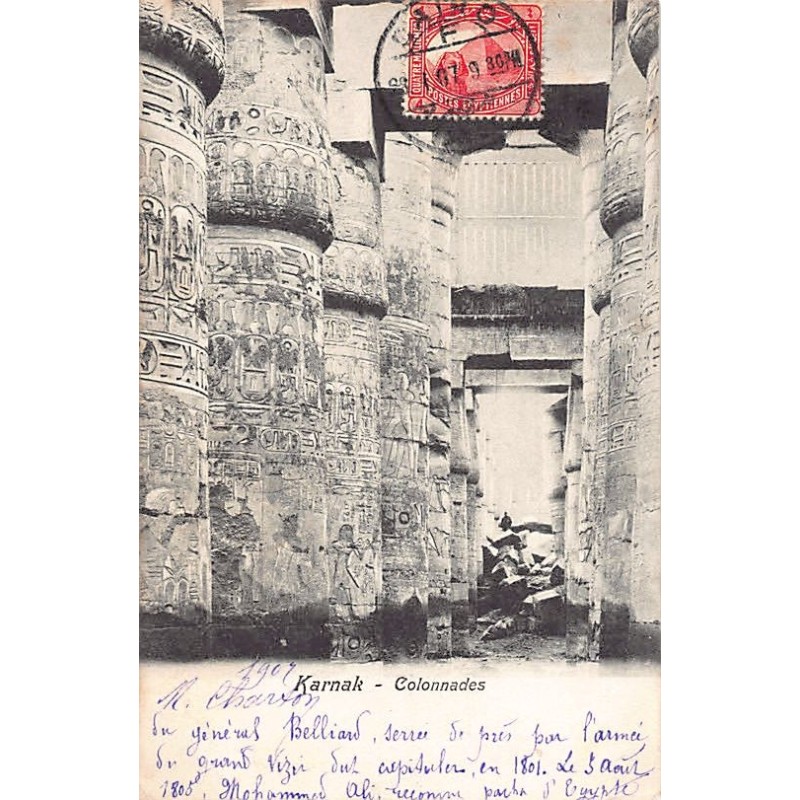 CAIRO
F
I 07 9 30 PM
QUATRE
POSTES EGYPTIENNES
1907
Karnak - Colonnades
M. Charton
du général Belliard, serrée de près par l'armée
du grand Vizir dut capituler, en 1801. Le 3 Août
1805, Mohammed Ali, reconnu pacha d'Egypte